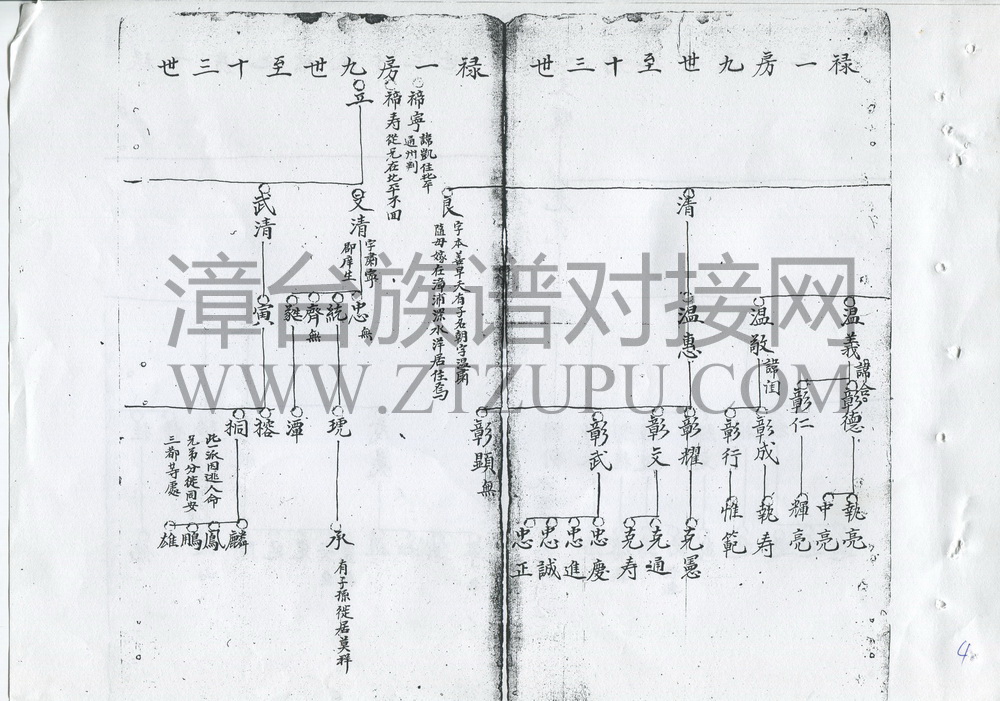 禄一房九世至十三世
清
温義 諱公哈
温敬 諱闰
温惠
彰德
彰仁
彰成
彰行
彰耀
彰文
彰武
彰顯 無
執亮
中亮
輝亮
執寿
惟範
克憲
克通
克寿
忠慶
忠進
忠誠
忠正
禄一房九世至十三世
禘寧 諱凱住北平
通州判
禘寿 從兄在北平不回
立
良 字本善早夭有子名朝字温甫
隨母嫁在漳浦深水洋居住焉
文清 字肅寧
郡庠生
武清
忠 無
統
齊 無
毅
寅
琥
潭
榕
桐
承 有子孫徙居莫祥
麟
鳳
鵬
雄
此一派因逃人命
兄弟分徙同安
三都等處
漳台族谱对接网
WWW.ZTZUPU.COM
4